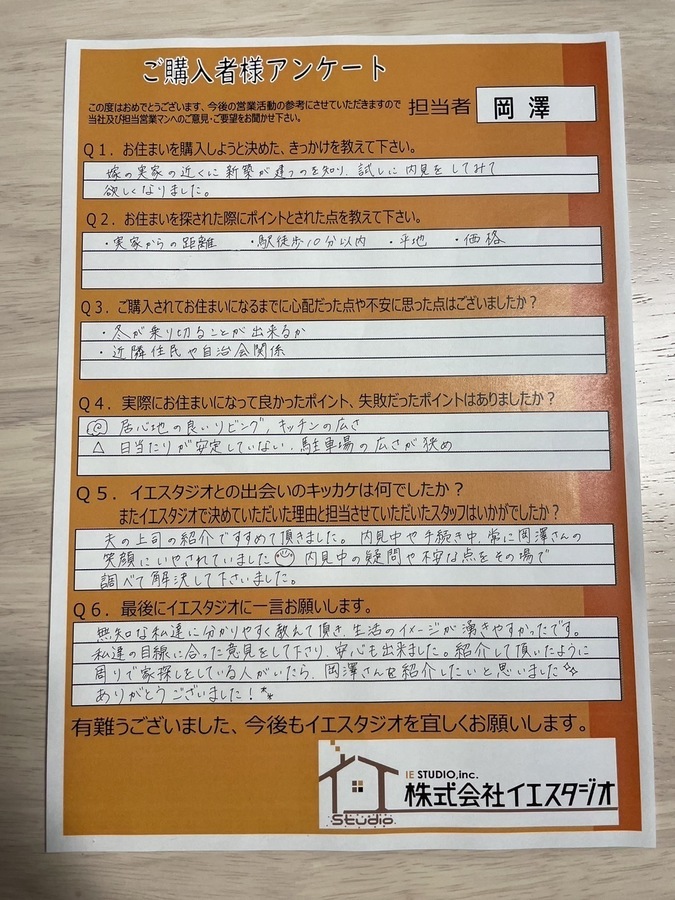 ご購入者様アンケート
この度はおめでとうございます、今後の営業活動の参考にさせていただきますので
当社及び担当営業マンへのご意見・ご要望をお聞かせ下さい。
担当者 岡澤
Q1. お住まいを購入しようと決めた、きっかけを教えて下さい。
嫁の実家の近くに新築が建つのを知り、試しに内見をしてみて
欲しくなりました。
Q2. お住まいを探された際にポイントとされた点を教えて下さい。
・実家からの距離 ・駅徒歩10分以内 ・平地 ・価格
Q3. ご購入されてお住まいになるまでに心配だった点や不安に思った点はございましたか？
・冬が乗り切ることが出来るか
・近隣住民や自治会関係
Q4. 実際にお住まいになって良かったポイント、失敗だったポイントはありましたか？
◎ 居心地の良いリビング、キッチンの広さ
△ 日当たりが安定していない、駐車場の広さが狭め
Q5. イエスタジオとの出会いのキッカケは何でしたか？
またイエスタジオで決めていただいた理由と担当させていただいたスタッフはいかがでしたか？
夫の上司の紹介ですすめて頂きました。内見中や手続き中、常に岡澤さんの
笑顔にいやされていました 内見中の疑問や不安な点をその場で
調べて解決して下さいました。
Q6. 最後にイエスタジオに一言お願いします。
無知な私達に分かりやすく教えて頂き、生活のイメージが湧きやすかったです。
私達の目線に合った意見をして下さり、安心も出来ました。紹介して頂いたように
周りで家探しをしている人がいたら、岡澤さんを紹介したいと思いました
ありがとうございました！
有難うございました、今後もイエスタジオを宜しくお願いします。
IE STUDIO,inc.
株式会社イエスタジオ
Studio